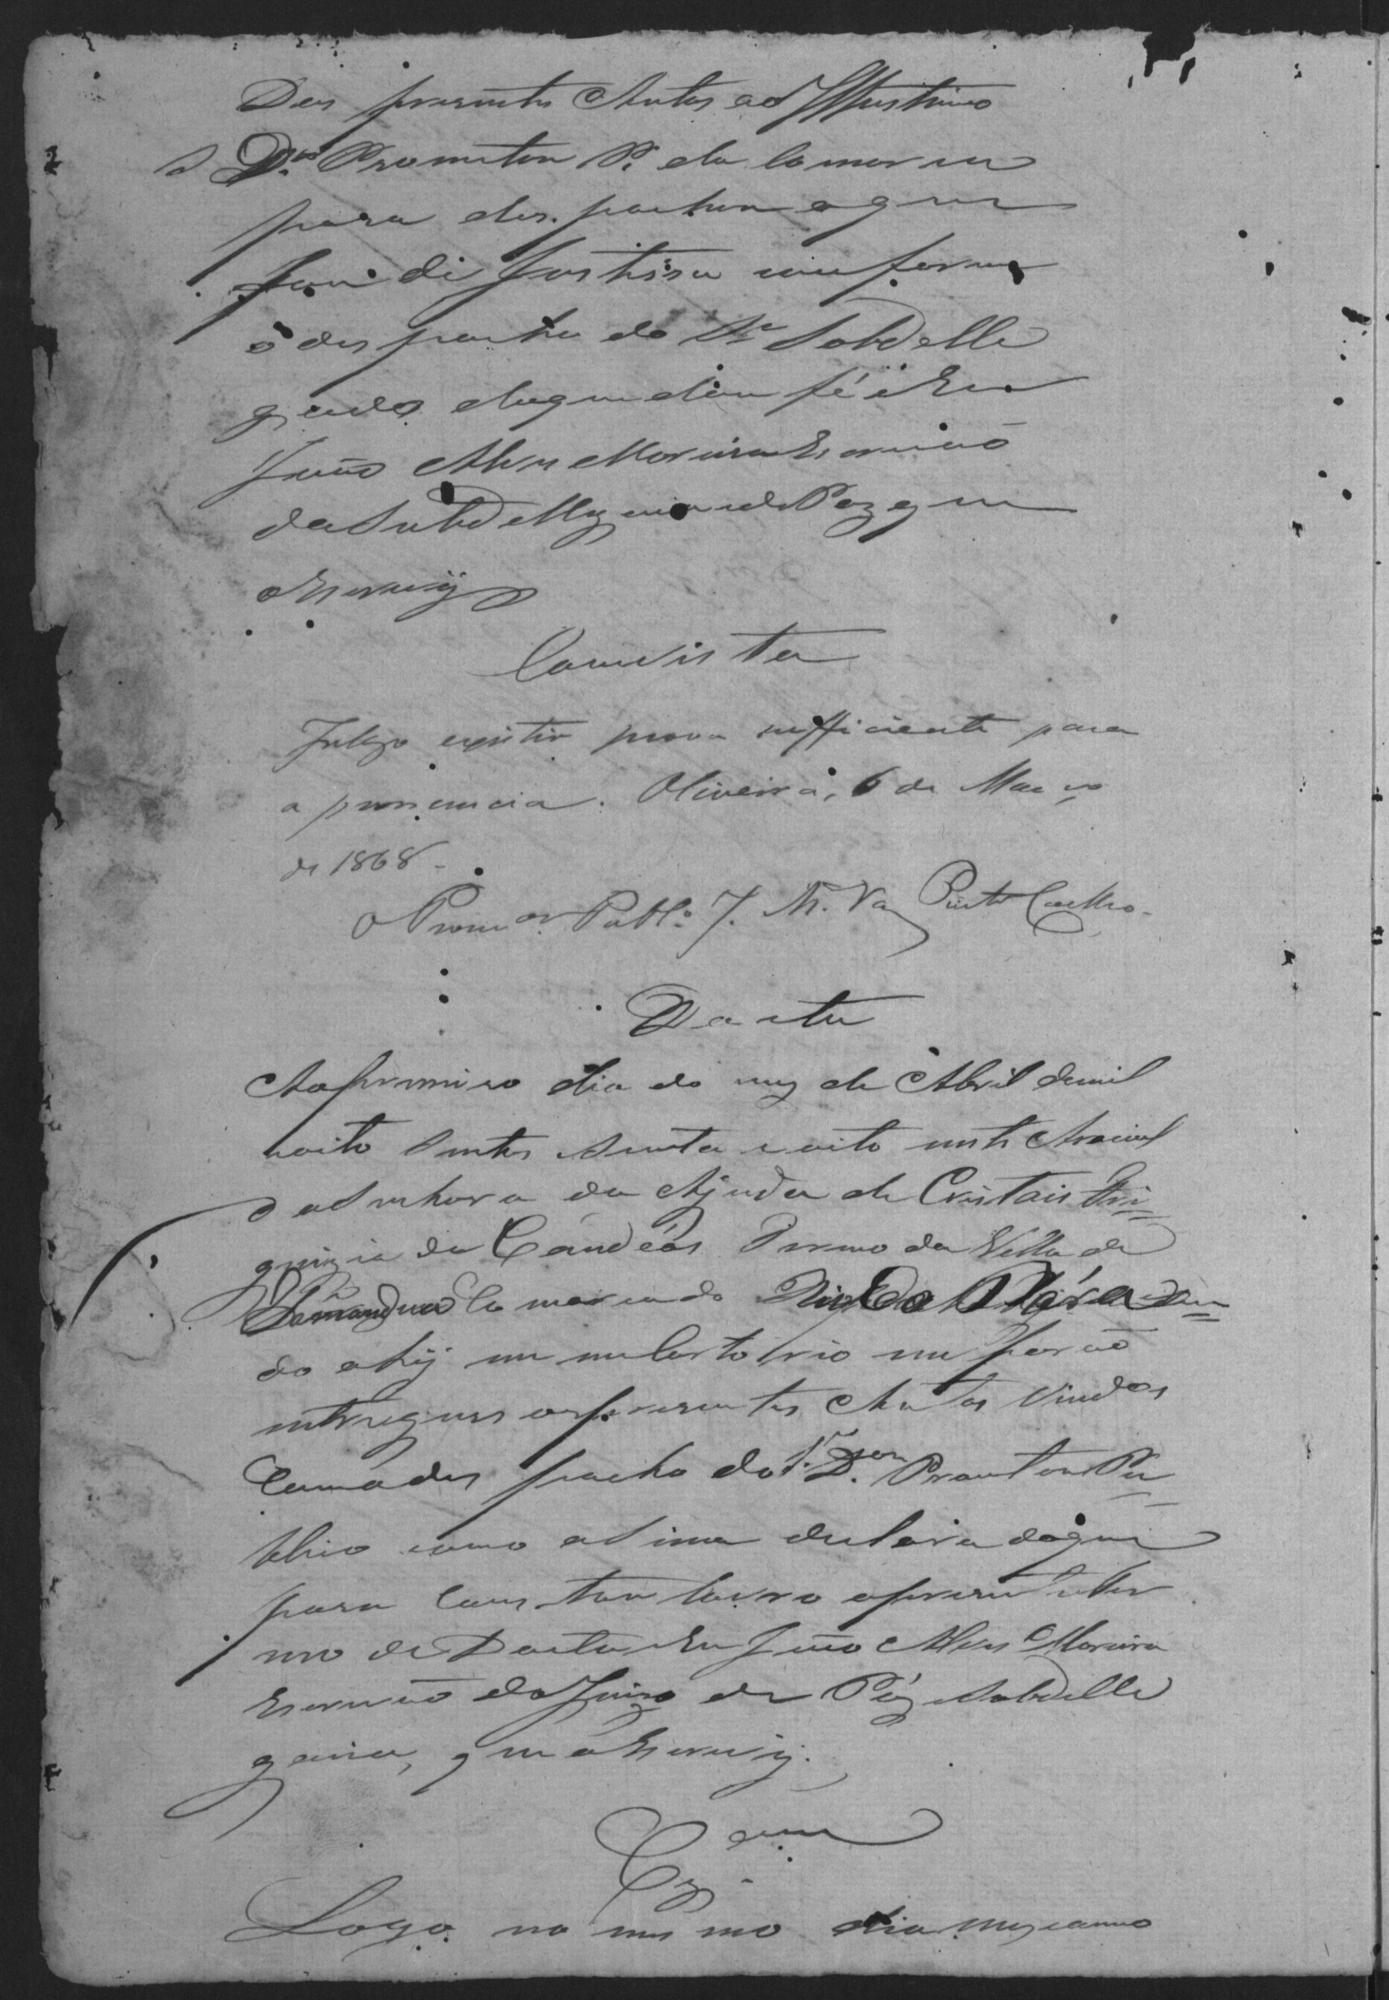 Des presentes Autos ao Illustrimo
D.or Promutor P. da Comarca
para des. pachar oque
for di Justissa comforme
o des pacho do Sr. Subdelle
gado doque dou fé i Eu
João Alves Moreira Escrivaõ
da Subdellegacia e de Paz que
o Escrevÿ
Comvista
Julgo existir prova sufficiente para
a pronuncia. Oliveira, 6 de Março
de 1868.
O Promor. Publ.o J. M. Vaz Pinto Coelho.
Dacta
Ao primeiro dia do mez de Abril demil
hoito Sentos Secenta e oito neste Arraial
da Senhora da Ajuda de Cristais Fri=
guizia de Candeás Termo da Villa de
Tamanduá Comarca do Rio Grande sen=
do ahÿ em meu Cartorio me foraõ
intregues os presentes Autos Vindos
Comades pacho do Sr. D.or Promutor Pu=
blico como asima declara doque
para Constar lavro apresente ter
mo de Dacta Eu João Alves Moreira
Escrivaõ do Juizo de Páz e Subdelle
gacia, que o Escrevÿ.
Logo no mesmo dia mez e anno